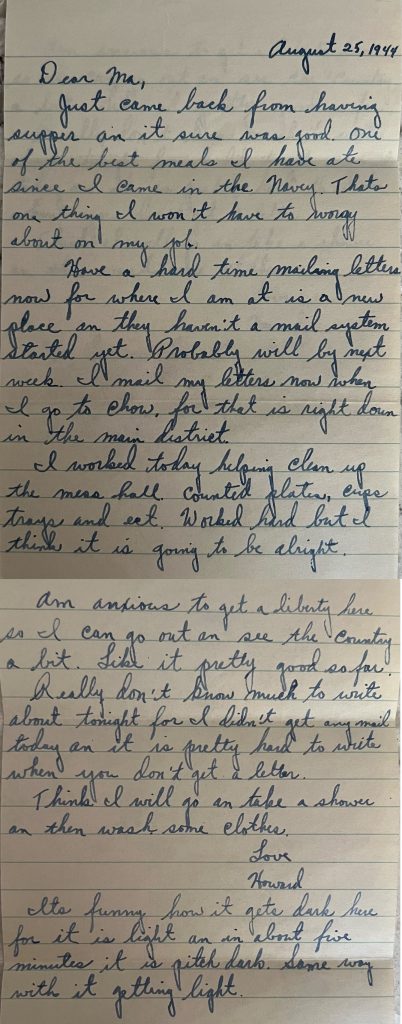 August 25, 1944
Dear Ma,
Just came back from having
supper an it sure was good. One
of the best meals I have ate
since I came in the Navey. Thats
one thing I won't have to worry
about on my job.
Have a hard time mailing letters
now for where I am at is a new
place an they haven't a mail system
started yet. Probably will by next
week. I mail my letters now when
I go to chow, for that is right down
in the main district.
I worked today helping clean up
the mess hall. Counted plates, cups
trays and ect. Worked hard but I
think it is going to be alright.
Am anxious to get a liberty here
so I can go out an see the country
a bit. Like it pretty good so far.
Really don't know much to write
about tonight for I didn't get any mail
today an it is pretty hard to write
when you don't get a letter.
Think I will go an take a shower
an then wash some clothes.
Love
Howard
Its funny how it gets dark here
for it is light an in about five
minutes it is pitch dark. Same way
with it getting light.